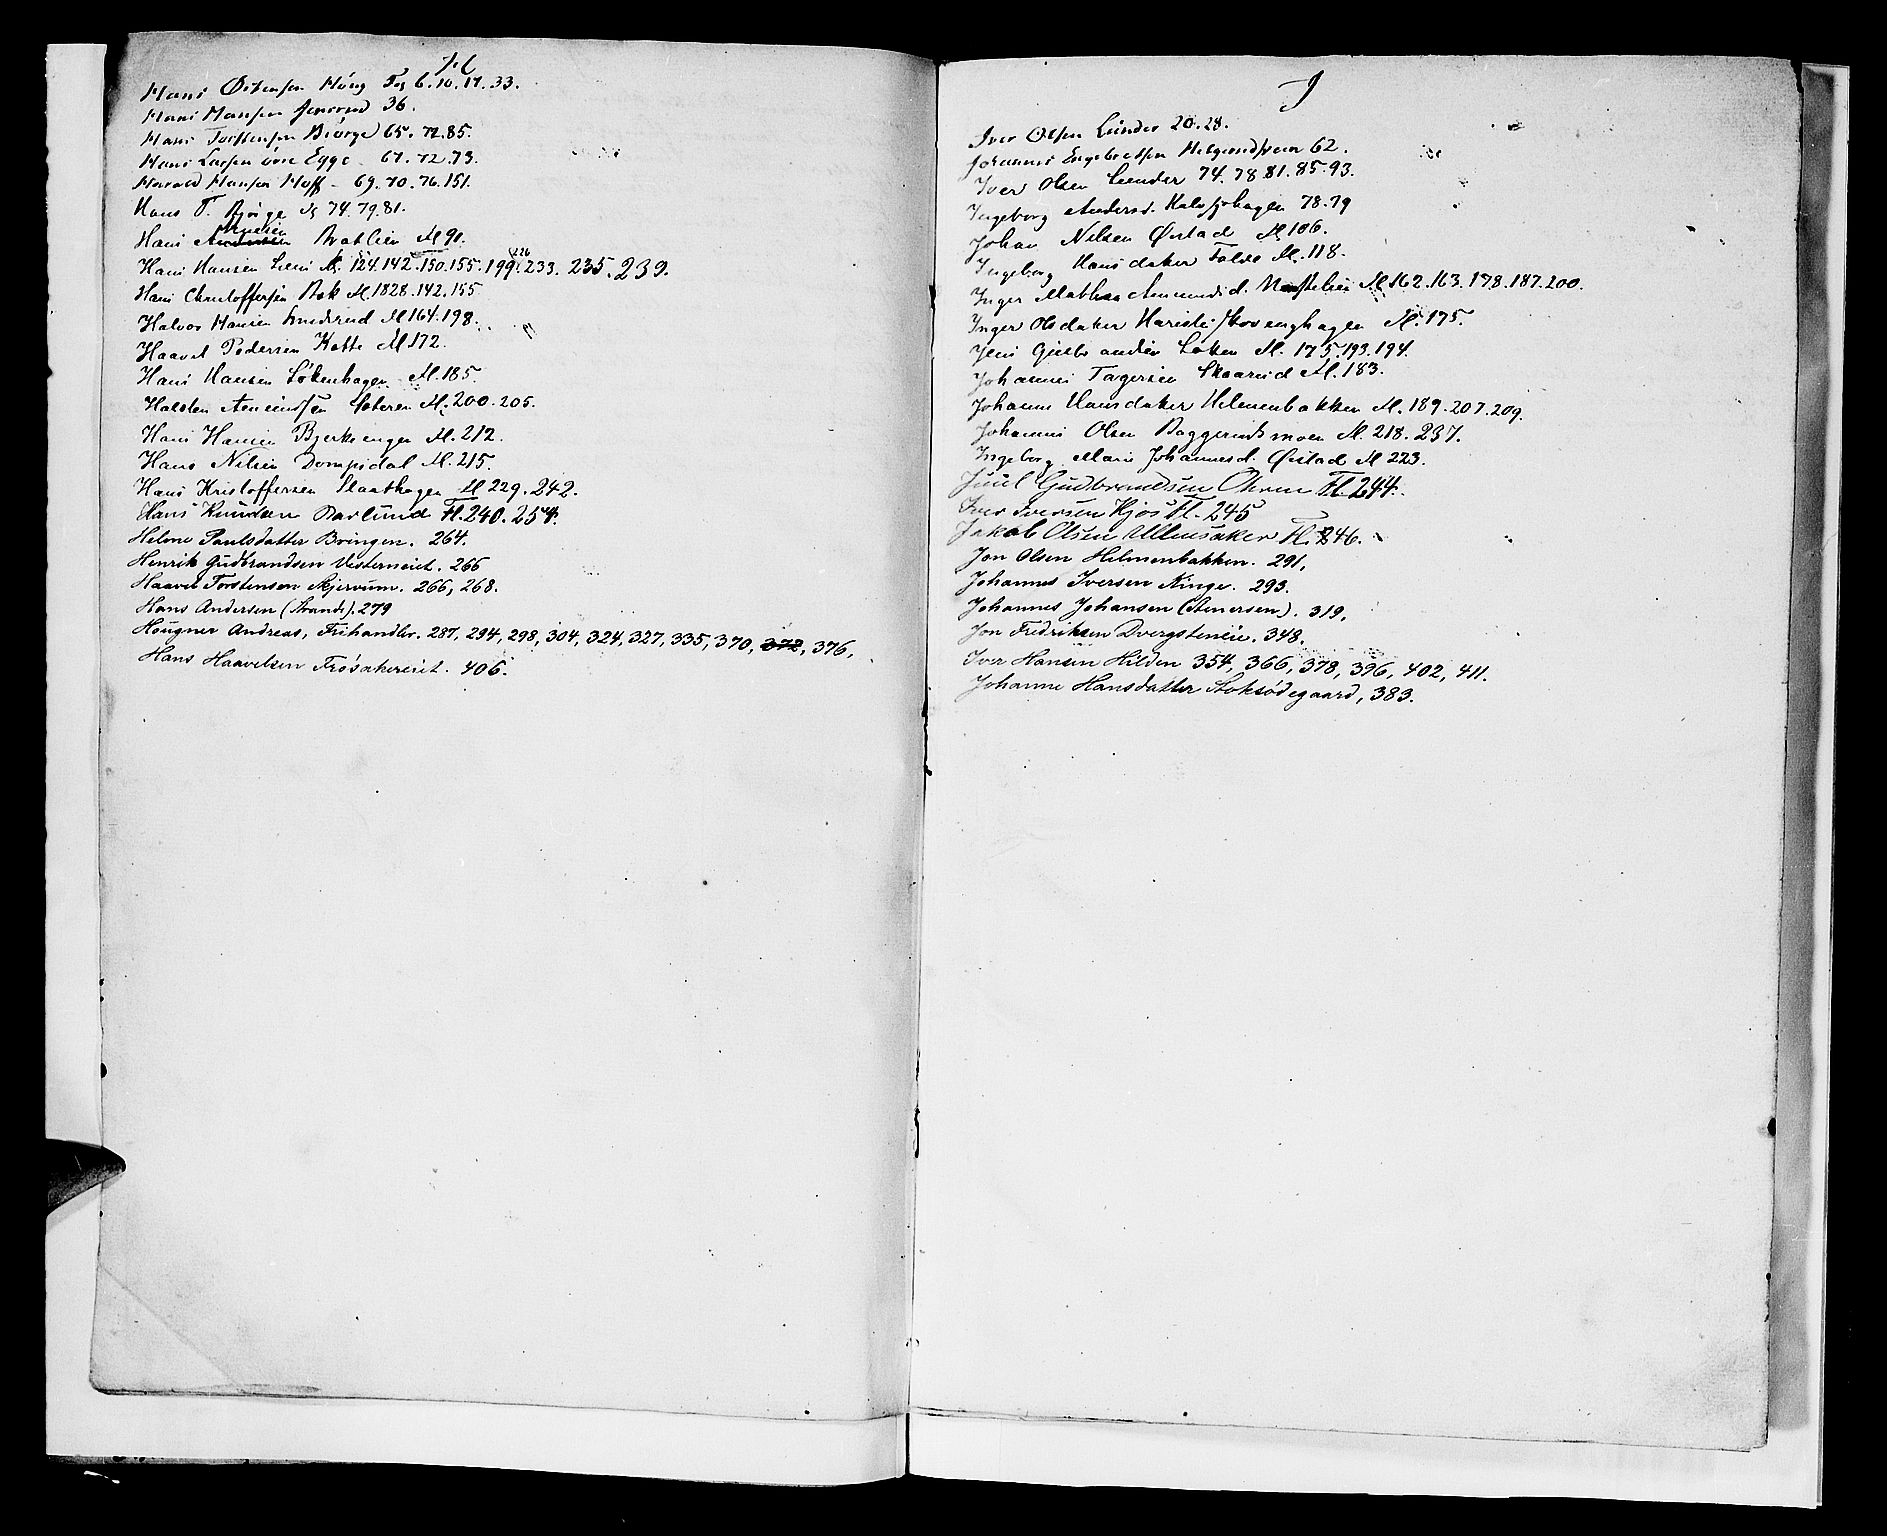 H
Hans Hóug Fol 6. 10. 17. 33.
Hans Hansen 36.
Hans Torstensen Biørge 65. 72. 85.
Hans Larsen øvre Egge 67. 72. 73.
Harald Hansen Hoff - 69. 70. 76. 151.
Hans T. Bjørge 74. 79. 81.
Hans Bratlien M 91.
Hans Hansen M. 124. 142. 150. 155. 199. 226 233. 235. 239.
Hans Christoffersen Bak M. 1828. 142. 155
Halvor Hansen M 164. 198.
Haavel Pedersen Kotte M 172.
Hans Hansen Løkenhagen M. 185.
Halsten Amundsen Sæteren M. 200. 205.
Hans Hansen Bjerkeengen M. 212.
Hans Nilsen Dompidal M. 215.
Hans Kristoffersen Slaathagen M 229. 242.
Hans Knudsen Børlund Fl. 240. 254.
Helene Paulsdatter Bringen. 264.
Henrik Gudbrandsen Vesterneiet. 266
Haavel Torstensen Skjervum. 266, 268.
Hans Andersen (Strande). 279
Hougner Andreas, Frihandler. 287, 294, 298, 304, 324, 327, 335, 370, 372, 376,
Hans Haavelsen Frøsakereiet. 406.
J
Iver Olsen Lunder 20. 28.
Johannes Engebretsen 62.
Iver Olsen Lunder 74. 78. 81. 85. 93.
Ingeborg Andersd. Kalvsjøhagen 78. 79
Johan Nilsen Østad M 106.
Ingeborg Hansdatter M. 118.
Inger Mathea Amundsd. M 162. 163. 178. 187. 200.
Inger Olsdatter M. 175.
Jens Gulbrandsen Løken M. 175. 193. 194.
Johannes Tagersen Skaarud M. 183.
Johanne Hansdatter Helmenbakken M. 189. 207. 209.
Johannes Olsen Baggerudsmoen M. 218. 237.
Ingeborg Marie Johannesd. Østad M 223.
Juul Gudbrandsen Ohren Fl. 244.
Iver Iversen Kjøs Fl. 245
Jakob Olsen Ullensaker Fl. 246.
Jon Olsen Helmenbakken. 291,
Johannes Iversen Ringe. 293.
Johannes Johansen (Aenersen). 319,
Jon Fredriksen Dvergsteneie. 348.
Iver Hansen Hilden 354, 366, 378, 396, 402, 411.
Johanne Hansdatter Stoksødegaard, 383.